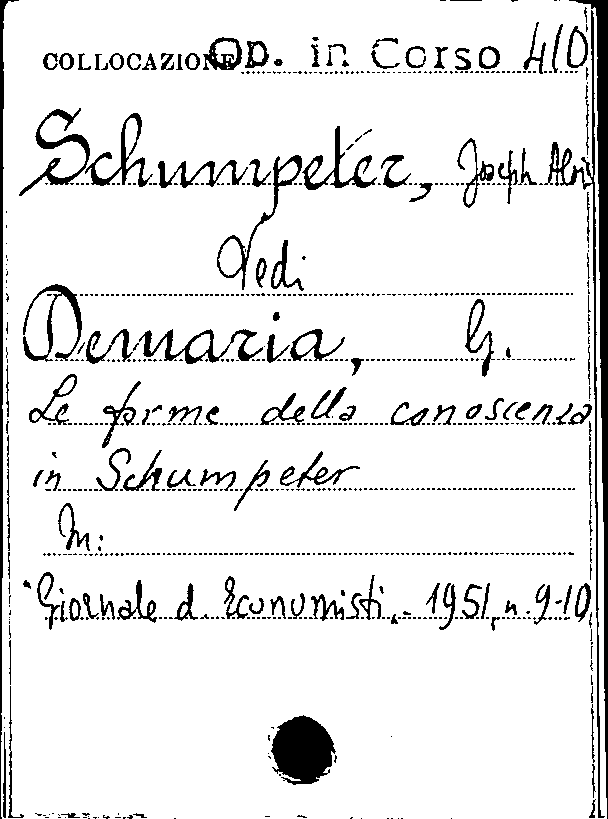 COLLOCAZIONE Op. in Corso 410
Schumpeter, Joseph Alois
Vedi
Demaria, G.
Le forme della conoscenza
in Schumpeter
In:
"Giornale d. Economisti,- 1951, n. 9-10